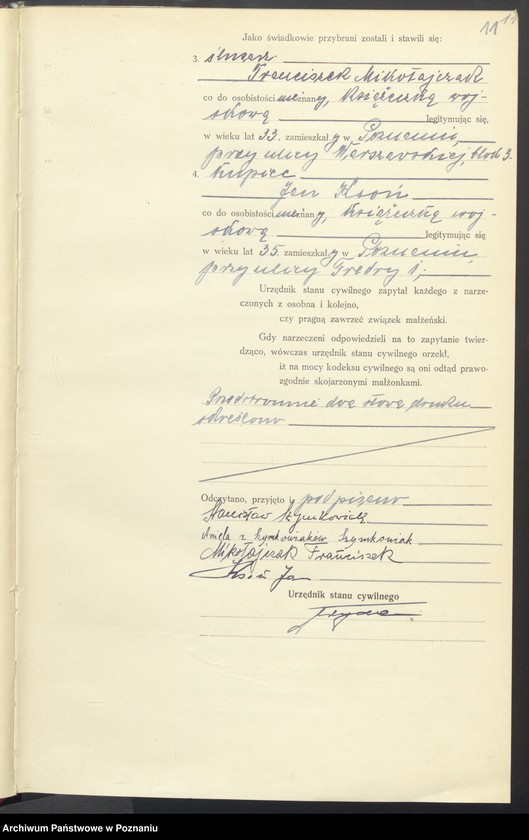 11
Jako świadkowie przybrani zostali i stawili się:
3. ślusarz
Franciszek Mikołajczak
co do osobistości nieznany, książeczką woj-
skową legitymując się,
w wieku lat 33, zamieszkały w Poznaniu,
przy ulicy Warszawskiej, blok 3.
4. kupiec
Jan Ksoń
co do osobistości nieznany, książeczką woj-
skową legitymując się
w wieku lat 35, zamieszkały w Poznaniu,
przy ulicy Fredry 1,
Urzędnik stanu cywilnego zapytał każdego z narze-
czonych z osobna i kolejno,
czy pragną zawrzeć związek małżeński.
Gdy narzeczeni odpowiedzieli na to zapytanie twier-
dząco, wówczas urzędnik stanu cywilnego orzekł,
iż na mocy kodeksu cywilnego są oni odtąd prawo-
zgodnie skojarzonymi małżonkami.
dwa słowa druku
skreślono
Odczytano, przyjęto i podpisano
Stanisław
Aniela z Szymkowiak
Mikołajczak Franciszek
Ksoń Jan
Urzędnik stanu cywilnego
Archiwum Państwowe w Poznaniu